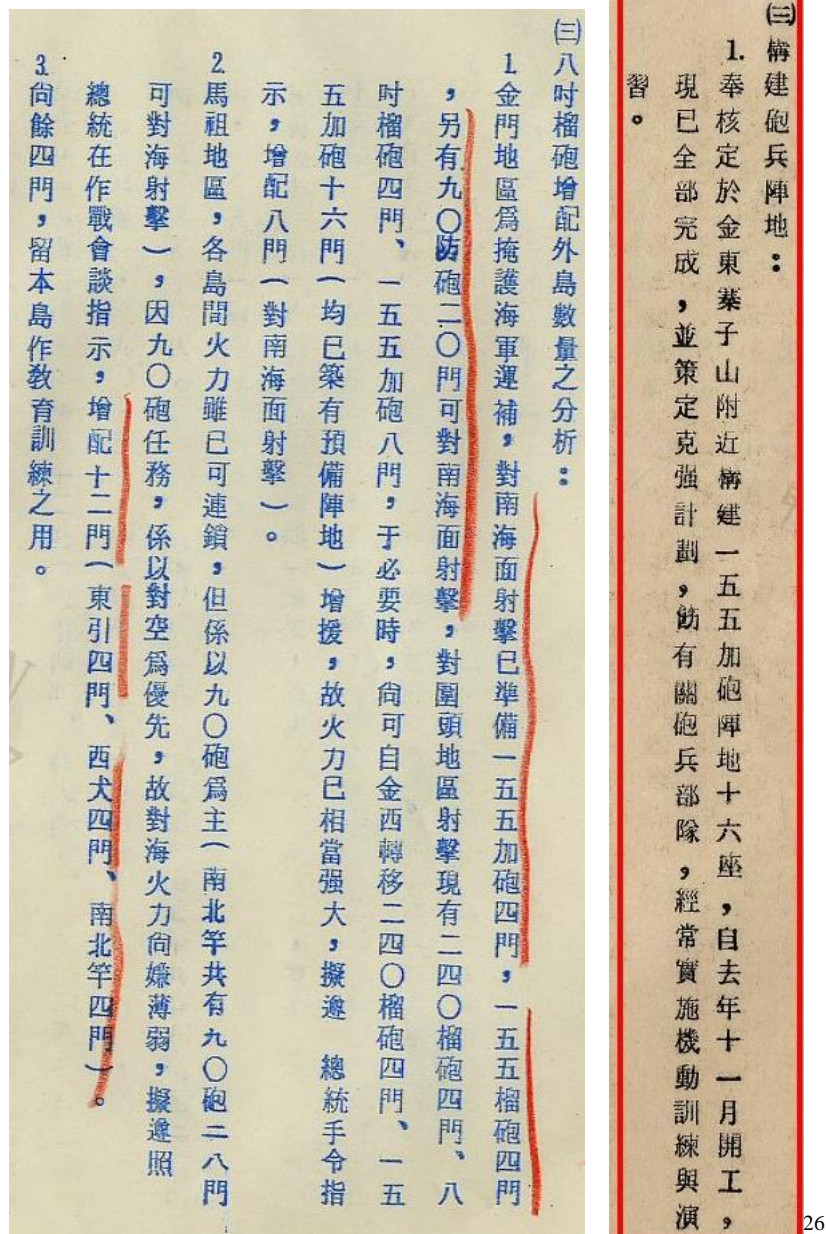 ㈢構建砲兵陣地：
1.奉核定於金東寨子山附近構建一五五加砲陣地十六座，自去年十一月開工，
現已全部完成，並策定克強計劃，飭有關砲兵部隊，經常實施機動訓練與演
習。
㈢八吋榴砲增配外島數量之分析：
1.金門地區爲掩護海軍運補，對南海面射擊已準備一五五加砲四門，一五五榴砲四門
，另有九〇防砲二〇門可對南海面射擊，對圍頭地區射擊現有二四〇榴砲四門、八
吋榴砲四門、一五五加砲八門，于必要時，尙可自金西轉移二四〇榴砲四門、一五
五加砲十六門（均已築有預備陣地）增援，故火力已相當强大，擬遵　總統手令指
示，增配八門（對南海面射擊）。
2.馬祖地區，各島間火力雖已可連鎖，但係以九〇砲爲主（南北竿共有九〇砲二八門
可對海射擊），因九〇砲任務，係以對空爲優先，故對海火力尙嫌薄弱，擬遵照
總統在作戰會談指示，增配十二門（東引四門、西犬四門、南北竿四門）。
3.尙餘四門，留本島作敎育訓練之用。
26